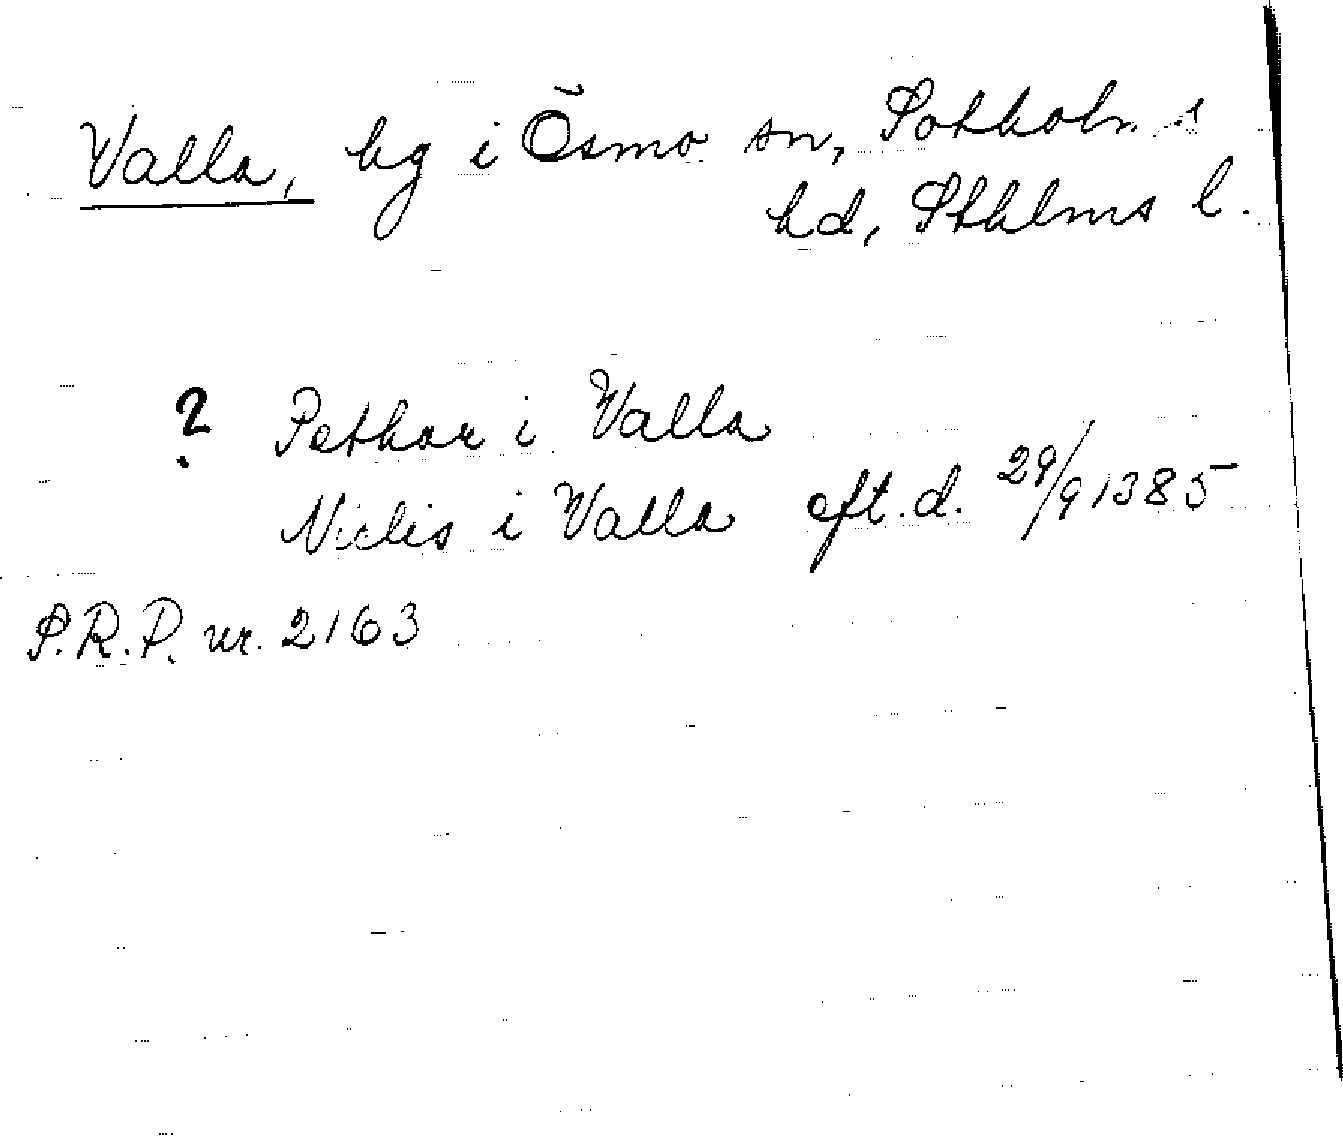 Valla, by i Ösmo sn, Sotholms
hd, Sthlms l.
? Pethar i Valla
Niclis i Valla eft. d. 29/9 1385
S.R.P. nr. 2163